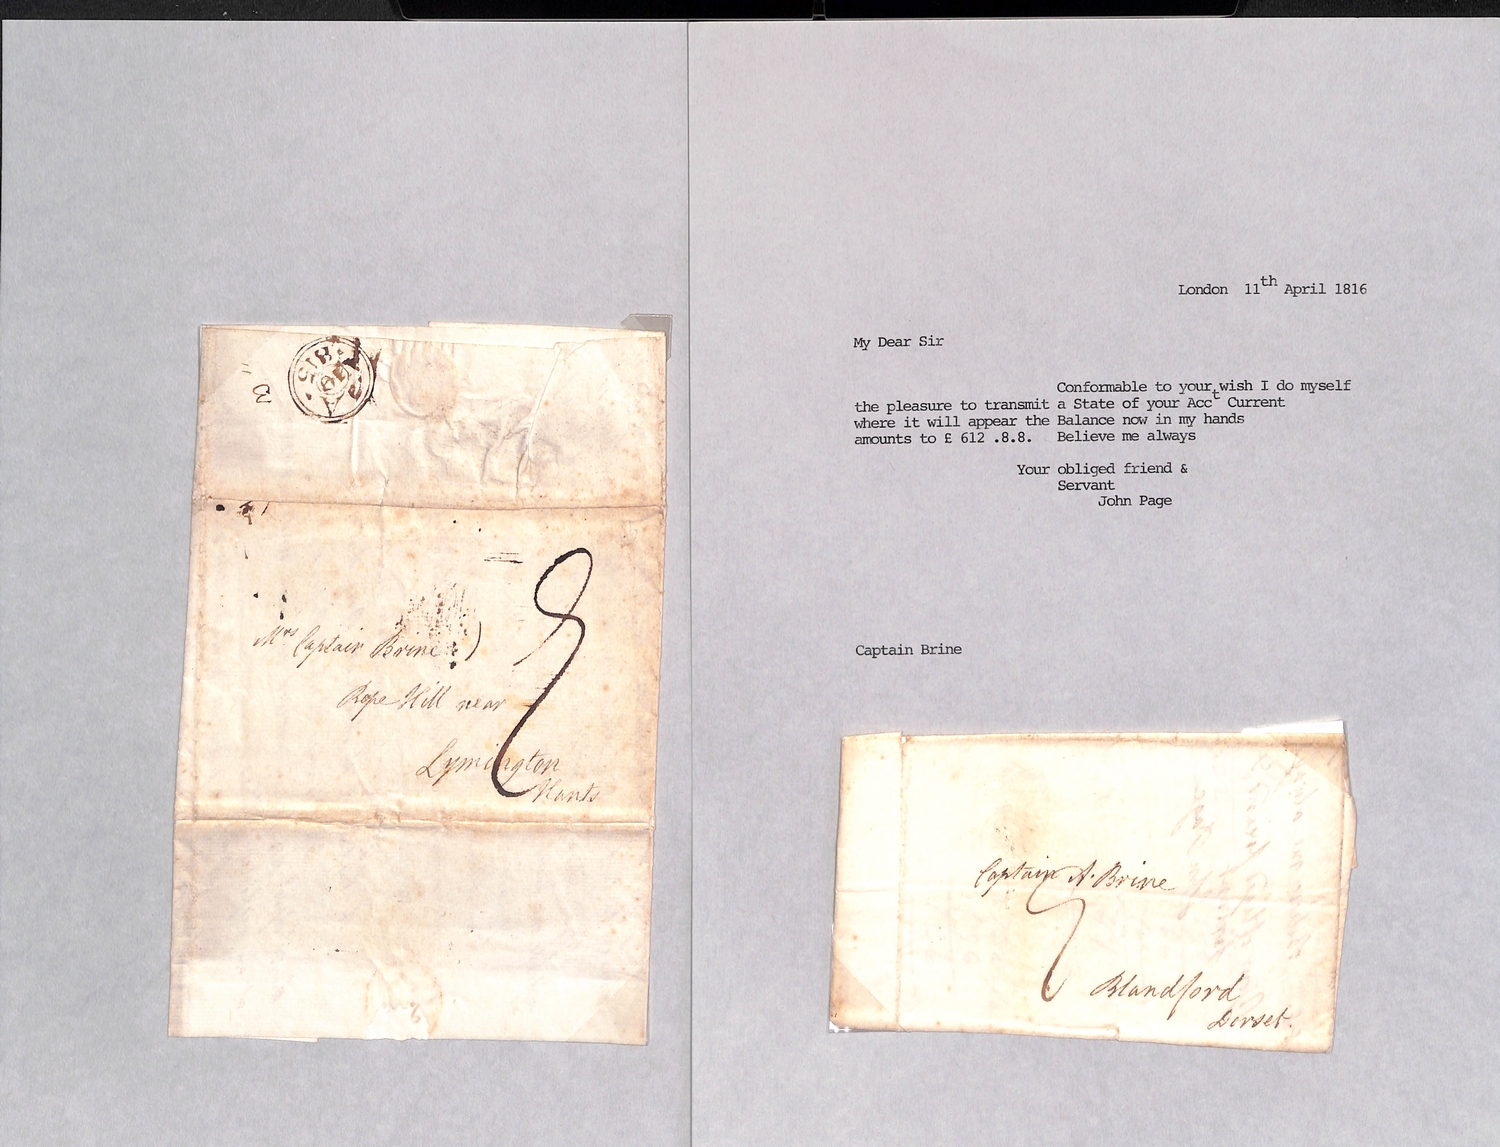 Mrs Captain Brine
Rope Hill near
Lymington
Hants
London 11th April 1816
My Dear Sir
Conformable to your wish I do myself
the pleasure to transmit a State of your Acct Current
where it will appear the Balance now in my hands
amounts to £ 612 .8.8. Believe me always
Your obliged friend &
Servant
John Page
Captain Brine
Captain A. Brine
7
Blandford
Dorset.